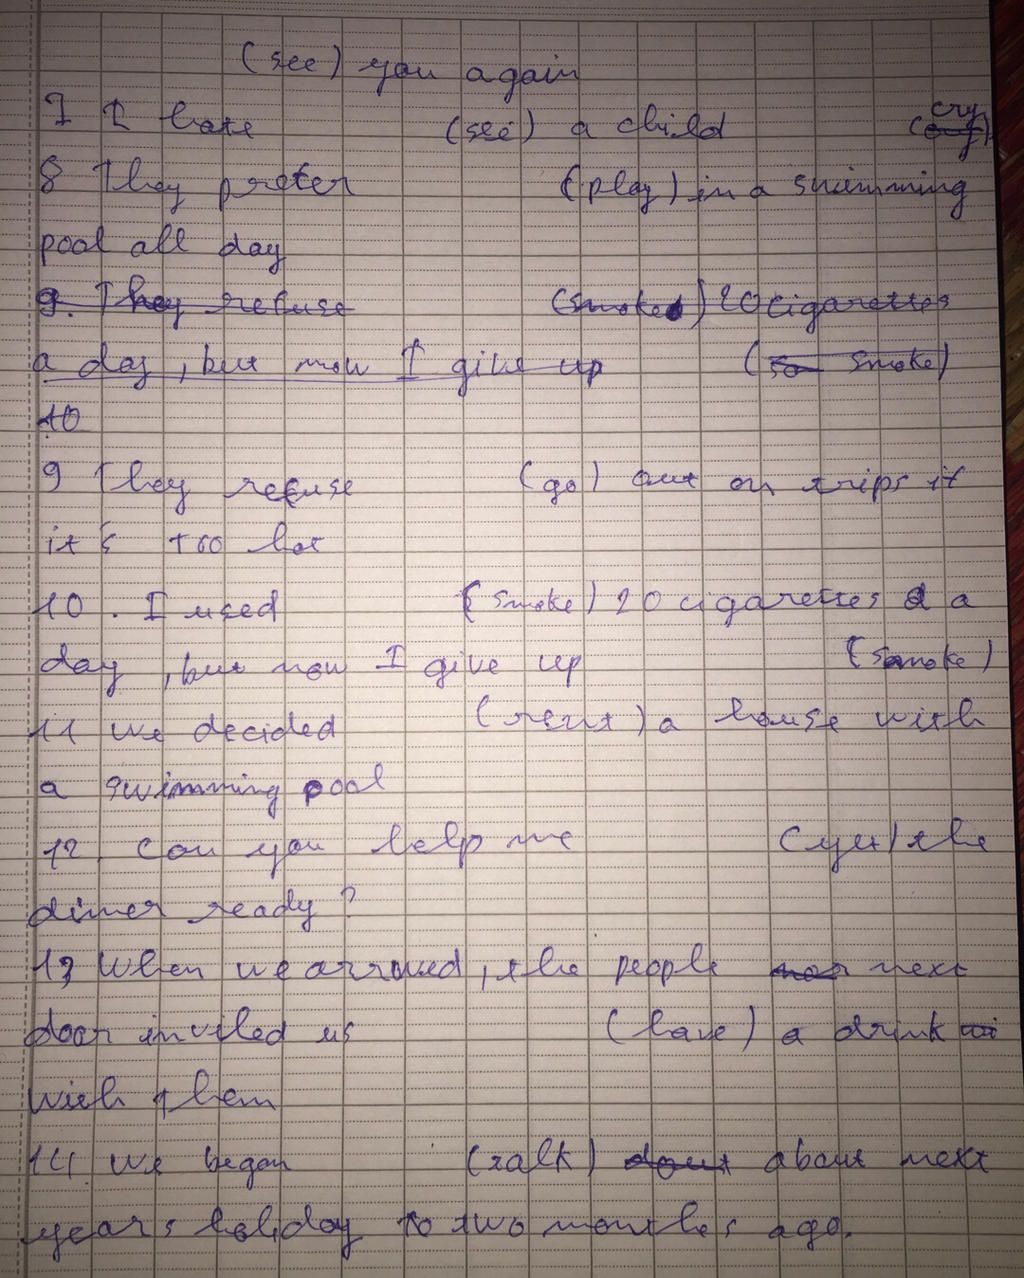 (see) you again
7 I hate (see) a child (cry)
8 They prefer (play) in a swimming
pool all day
9. They refuse (smoked) 20 cigarettes
a day, but now I give up (so smoke)
10
9 They refuse (go) out on trips if
it's too hot
10. I used (smoke) 20 cigarettes a
day, but now I give up (smoke)
11 we decided (rent) a house with
a swimming pool
12. Can you help me (get) the
dinner ready?
13 When we arrived, the people next
door invited us (have) a drink
with them
14 We began (talk) about next
years holiday to two months ago.